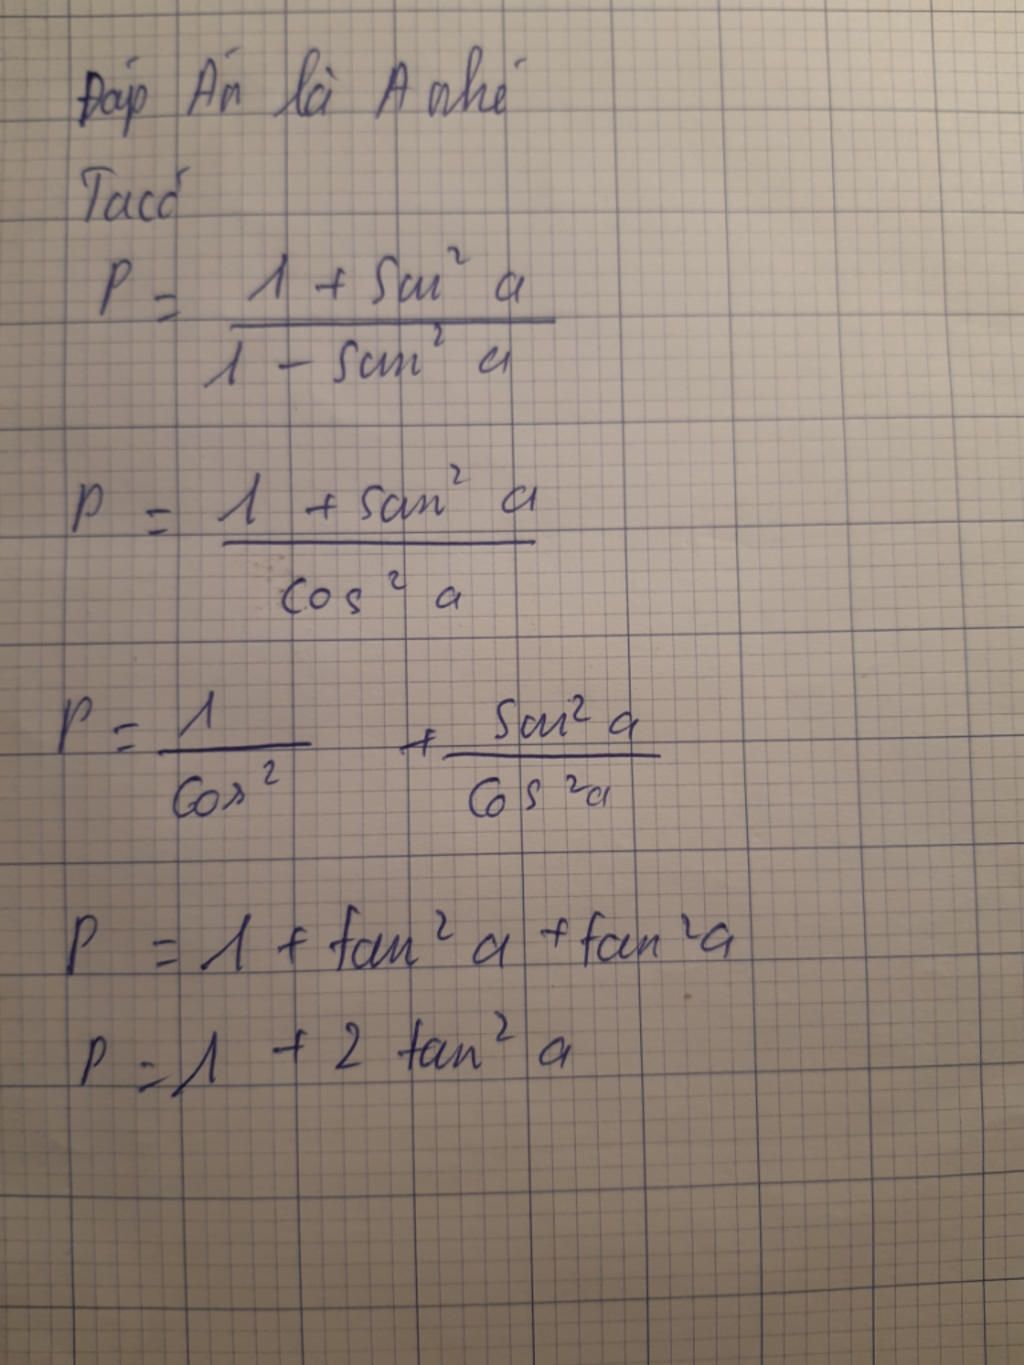 Đáp Án là A nhé
Ta có
P = 1 + San² a / 1 - San² a
P = 1 + San² a / Cos² a
P = 1 / Cos² + San² a / Cos² a
P = 1 + tan² a + tan² a
P = 1 + 2 tan² a